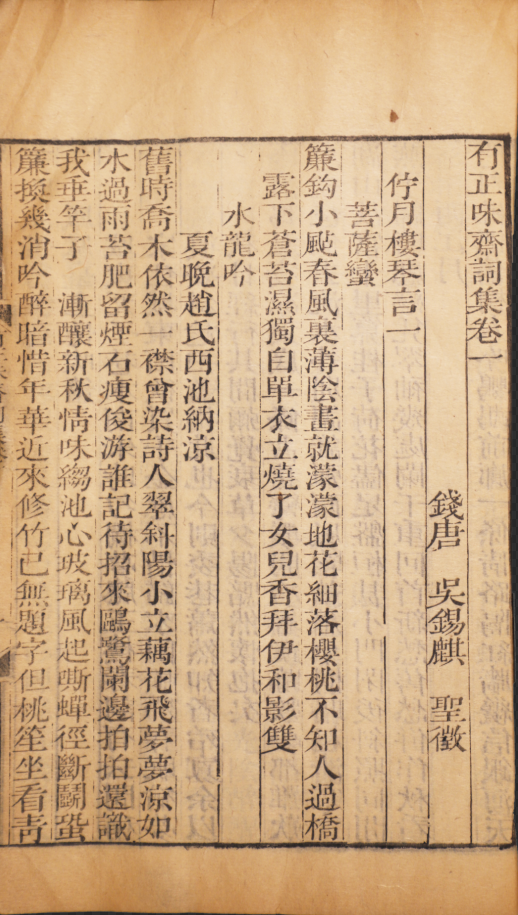 有正味齋詞集卷一
錢唐 吳錫麒 聖徵
佇月樓琴言一
菩薩蠻
簾鈎小颭春風裏薄陰畫就濛濛地花細落櫻桃不知人過橋
露下蒼苔濕獨自單衣立燒了女兒香拜伊和影雙
水龍吟
夏晚趙氏西池納涼
舊時喬木依然一襟曾染詩人翠斜陽小立藕花飛夢夢涼如
水過雨苔肥留煙石瘦俊游誰記待招來鷗鷺闌邊拍拍還識
我垂竿子 漸釀新秋情味縐池心玻璃風起嘶蟬徑斷鬭蛩
簾換幾消吟醉暗惜年華近來修竹已無題字但桃笙坐看靑